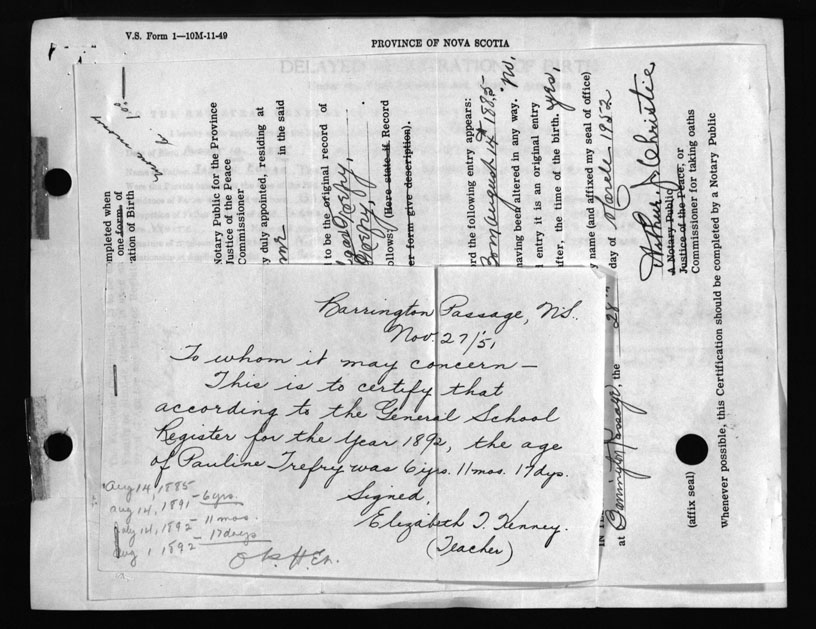 V.S. Form 1—10M-11-49
PROVINCE OF NOVA SCOTIA
DELAYED REGISTRATION OF BIRTH
mpleted when
one form of
ation of Birth
Notary Public for the Province
Justice of the Peace
Commissioner
y duly appointed residing at
in the said
l to be the original record of
ollows: (Here state if Record
er form give description).
ord the following entry appears:
Born August 14th 1885
having been altered in any way. no,
l entry it is an original entry
fter, the time of the birth. yes,
y name (and affixed my seal of office)
day of March 1952
Arthur J. Christie
A Notary Public
Justice of the Peace, or
Commissioner for taking oaths
at Barrington Passage, the 28th
(affix seal)
Whenever possible, this Certification should be completed by a Notary Public
Barrington Passage, N.S.
Nov. 27/51
To whom it may concern —
This is to certify that
according to the General School
Register for the Year 1892, the age
of Pauline Trefry was 6 yrs. 11 mos. 17 dys.
Signed,
Elizabeth T. Kenney.
(Teacher)
Aug 14, 1885
Aug 14, 1891 – 6 yrs.
July 14, 1892 – 11 mos.
Aug 1 1892 – 17 days